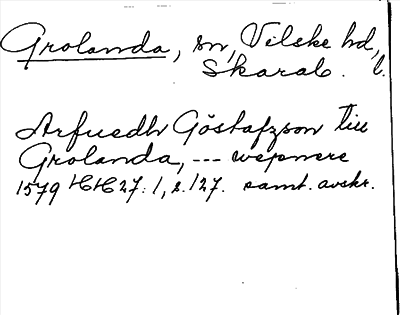 Grolanda, sn, Vilske hd,
Skarab. l.
Arfuedh Göstafzson till
Grolanda, --- wepnere
1579 HH 27: 1, s. 127. samt. avskr.